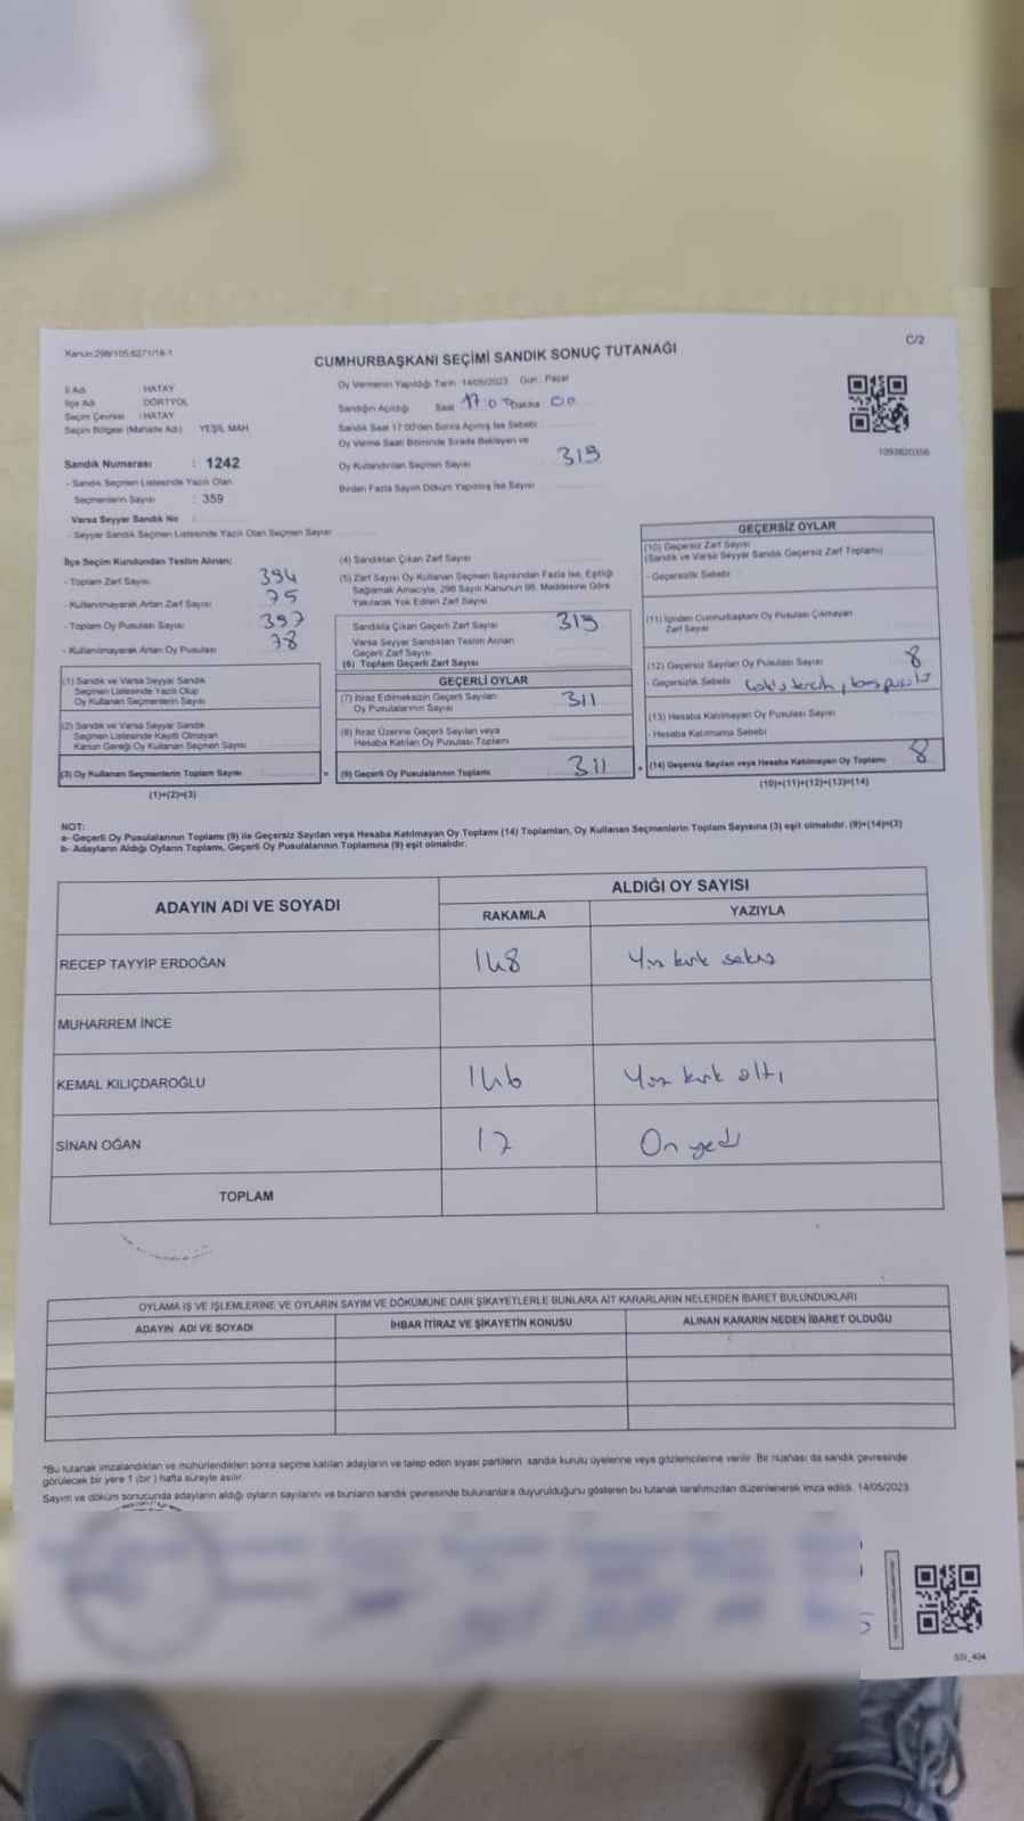 Kanun:298/105,6271/16-1
C/2
CUMHURBAŞKANI SEÇİMİ SANDIK SONUÇ TUTANAĞI
İl Adı : HATAY
İlçe Adı : DÖRTYOL
Seçim Çevresi : HATAY
Seçim Bölgesi (Mahalle Adı) : YEŞİL MAH
Oy Vermenin Yapıldığı Tarih: 14/05/2023 Gün: Pazar
Sandığın Açıldığı Saat 17:0 Dakika 00
Sandık Saat 17:00'den Sonra Açılmış İse Sebebi
Oy Verme Saati Bitiminde Sırada Bekleyen ve
Oy Kullandırılan Seçmen Sayısı 319
Birden Fazla Sayım Döküm Yapılmış İse Sayısı
1093820356
Sandık Numarası : 1242
- Sandık Seçmen Listesinde Yazılı Olan
Seçmenlerin Sayısı : 359
Varsa Seyyar Sandık No
- Seyyar Sandık Seçmen Listesinde Yazılı Olan Seçmen Sayısı
İlçe Seçim Kurulundan Teslim Alınan:
- Toplam Zarf Sayısı 394
- Kullanılmayarak Artan Zarf Sayısı 75
- Toplam Oy Pusulası Sayısı 397
- Kullanılmayarak Artan Oy Pusulası 78
(1) Sandık ve Varsa Seyyar Sandık
Seçmen Listesinde Yazılı Olup
Oy Kullanan Seçmenlerin Sayısı
(2) Sandık ve Varsa Seyyar Sandık
Seçmen Listesinde Kayıtlı Olmayan
Kanun Gereği Oy Kullanan Seçmen Sayısı
(3) Oy Kullanan Seçmenlerin Toplam Sayısı
(1)+(2)=(3)
(4) Sandıktan Çıkan Zarf Sayısı
(5) Zarf Sayısı Oy Kullanan Seçmen Sayısından Fazla İse, Eşitliği
Sağlamak Amacıyla, 298 Sayılı Kanunun 98. Maddesine Göre
Yakılarak Yok Edilen Zarf Sayısı
Sandıkta Çıkan Geçerli Zarf Sayısı 319
Varsa Seyyar Sandıktan Teslim Alınan
Geçerli Zarf Sayısı
(6) Toplam Geçerli Zarf Sayısı
GEÇERLİ OYLAR
(7) İtiraz Edilmeksizin Geçerli Sayılan
Oy Pusulalarının Sayısı 311
(8) İtiraz Üzerine Geçerli Sayılan veya
Hesaba Katılan Oy Pusulası Toplamı
= (9) Geçerli Oy Pusulalarının Toplamı 311
GEÇERSİZ OYLAR
(10) Geçersiz Zarf Sayısı
(Sandık ve Varsa Seyyar Sandık Geçersiz Zarf Toplamı)
- Geçersizlik Sebebi
(11) İçinden Cumhurbaşkanı Oy Pusulası Çıkmayan
Zarf Sayısı
(12) Geçersiz Sayılan Oy Pusulası Sayısı 8
- Geçersizlik Sebebi
(13) Hesaba Katılmayan Oy Pusulası Sayısı
- Hesaba Katılmama Sebebi
+ (14) Geçersiz Sayılan veya Hesaba Katılmayan Oy Toplamı 8
(10)+(11)+(12)+(13)=(14)
NOT:
a- Geçerli Oy Pusulalarının Toplamı (9) ile Geçersiz Sayılan veya Hesaba Katılmayan Oy Toplamı (14) Toplamları, Oy Kullanan Seçmenlerin Toplam Sayısına (3) eşit olmalıdır. (9)+(14)=(3)
b- Adayların Aldığı Oyların Toplamı, Geçerli Oy Pusulalarının Toplamına (9) eşit olmalıdır.
ADAYIN ADI VE SOYADI
ALDIĞI OY SAYISI
RAKAMLA YAZIYLA
RECEP TAYYİP ERDOĞAN 148 Yüz kırk sekiz
MUHARREM İNCE
KEMAL KILIÇDAROĞLU 146 Yüz kırk altı
SİNAN OĞAN 17 On yedi
TOPLAM
OYLAMA İŞ VE İŞLEMLERİNE VE OYLARIN SAYIM VE DÖKÜMÜNE DAİR ŞİKAYETLERLE BUNLARA AİT KARARLARIN NELERDEN İBARET BULUNDUKLARI
ADAYIN ADI VE SOYADI İHBAR İTİRAZ VE ŞİKAYETİN KONUSU ALINAN KARARIN NEDEN İBARET OLDUĞU
*Bu tutanak imzalandıktan ve mühürlendikten sonra seçime katılan adayların ve talep eden siyasi partilerin sandık kurulu üyelerine veya gözlemcilerine verilir. Bir nüshası da sandık çevresinde
görülecek bir yere 1 (bir) hafta süreyle asılır.
Sayım ve döküm sonucunda adayların aldığı oyların sayılarını ve bunların sandık çevresinde bulunanlara duyurulduğunu gösteren bu tutanak tarafımızdan düzenlenerek imza edildi. 14/05/2023